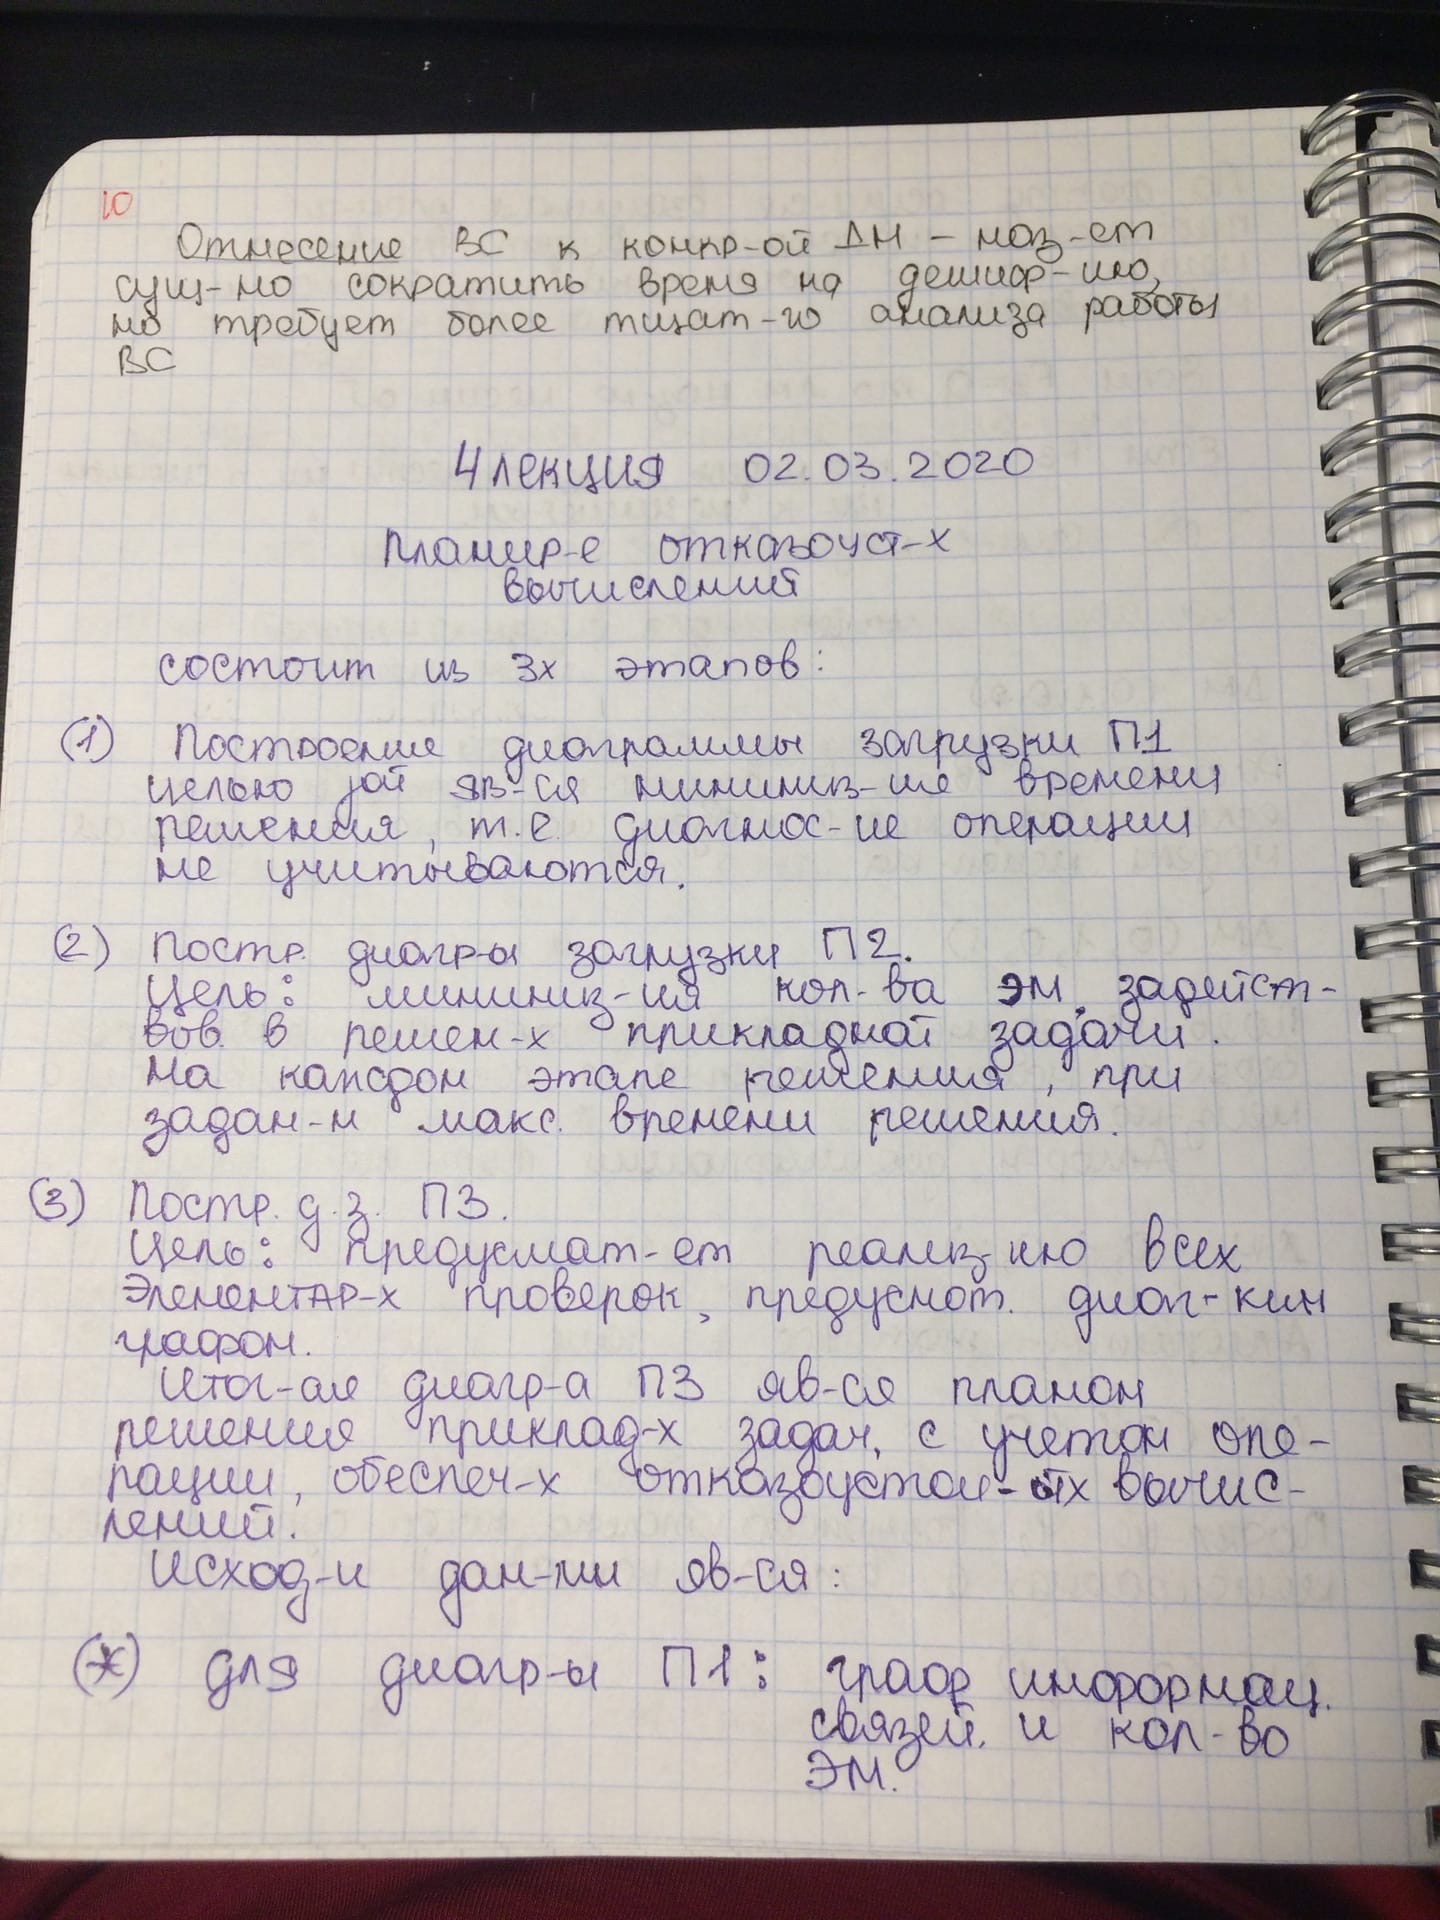 10
Отнесение ВС к конкр-ой ДН – поз-ет
сущ-но сократить время на дешифр-ию,
но требует более тщат-го анализа работы
ВС
4 лекция 02.03.2020
Планир-е отказоуст-х
вычислений
состоит из 3х этапов:
(1) Построение диаграммы загрузки П1
целью яв-ся минимиз-ие времени
решения, т.е. диагнос-ие операции
не учитываются.
(2) Постр. диагр-ы загрузки П2.
Цель: минимиз-ия кол-ва ЭМ, задейст-
вов. в решен-х прикладной задачи.
На каждом этапе решения, при
задан-м макс. времени решения.
(3) Постр. д.з. П3.
Цель: предусмат-ет реализ-ию всех
Элементар-х проверок, предусмот. диаг-ким
графом.
Итог-ая диагр-а П3 яв-ся планом
решения приклад-х задач, с учетом опе-
рации, обеспеч-х отказоустой-ых вычис-
лений.
Исход-и дан-ми яв-ся:
(*) для диагр-ы П1: граф информац.
связей, и кол-во
ЭМ.